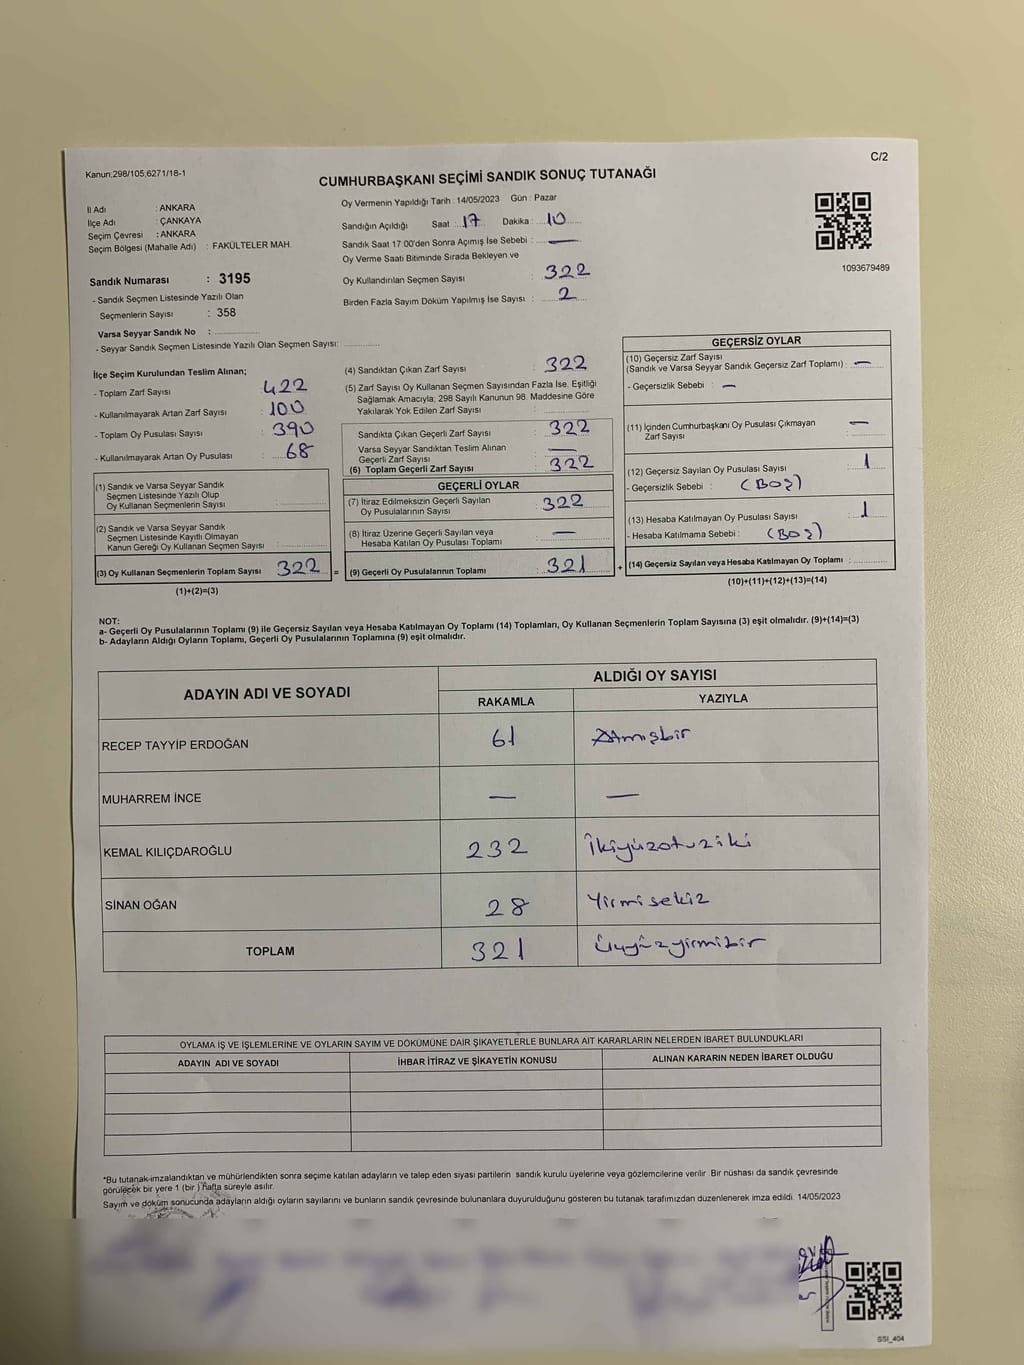 C/2
Kanun;298/105,6271/18-1
CUMHURBAŞKANI SEÇİMİ SANDIK SONUÇ TUTANAĞI
İl Adı : ANKARA
İlçe Adı : ÇANKAYA
Seçim Çevresi : ANKARA
Seçim Bölgesi (Mahalle Adı) : FAKÜLTELER MAH.
Sandık Numarası : 3195
- Sandık Seçmen Listesinde Yazılı Olan
Seçmenlerin Sayısı : 358
Varsa Seyyar Sandık No :
- Seyyar Sandık Seçmen Listesinde Yazılı Olan Seçmen Sayısı:
Oy Vermenin Yapıldığı Tarih : 14/05/2023 Gün : Pazar
Sandığın Açıldığı Saat : 17 Dakika : 10
Sandık Saat 17:00'den Sonra Açımış İse Sebebi : —
Oy Verme Saati Bitiminde Sırada Bekleyen ve
Oy Kullandırılan Seçmen Sayısı : 322
Birden Fazla Sayım Döküm Yapılmış İse Sayısı : 2
1093679489
İlçe Seçim Kurulundan Teslim Alınan;
- Toplam Zarf Sayısı : 422
- Kullanılmayarak Artan Zarf Sayısı : 100
- Toplam Oy Pusulası Sayısı : 390
- Kullanılmayarak Artan Oy Pusulası : 68
(1) Sandık ve Varsa Seyyar Sandık
Seçmen Listesinde Yazılı Olup
Oy Kullanan Seçmenlerin Sayısı :
(2) Sandık ve Varsa Seyyar Sandık
Seçmen Listesinde Kayıtlı Olmayan
Kanun Gereği Oy Kullanan Seçmen Sayısı :
(3) Oy Kullanan Seçmenlerin Toplam Sayısı 322 =
(1)+(2)=(3)
(4) Sandıktan Çıkan Zarf Sayısı : 322
(5) Zarf Sayısı Oy Kullanan Seçmen Sayısından Fazla İse, Eşitliği
Sağlamak Amacıyla; 298 Sayılı Kanunun 98. Maddesine Göre
Yakılarak Yok Edilen Zarf Sayısı :
Sandıkta Çıkan Geçerli Zarf Sayısı : 322
Varsa Seyyar Sandıktan Teslim Alınan
Geçerli Zarf Sayısı : —
(6) Toplam Geçerli Zarf Sayısı : 322
GEÇERLİ OYLAR
(7) İtiraz Edilmeksizin Geçerli Sayılan
Oy Pusulalarının Sayısı : 322
(8) İtiraz Üzerine Geçerli Sayılan veya
Hesaba Katılan Oy Pusulası Toplamı : —
(9) Geçerli Oy Pusulalarının Toplamı : 321 +
GEÇERSİZ OYLAR
(10) Geçersiz Zarf Sayısı
(Sandık ve Varsa Seyyar Sandık Geçersiz Zarf Toplamı) : —
- Geçersizlik Sebebi : —
(11) İçinden Cumhurbaşkanı Oy Pusulası Çıkmayan
Zarf Sayısı : —
(12) Geçersiz Sayılan Oy Pusulası Sayısı : 1
- Geçersizlik Sebebi : (BOŞ)
(13) Hesaba Katılmayan Oy Pusulası Sayısı : 1
- Hesaba Katılmama Sebebi : (BOŞ)
(14) Geçersiz Sayılan veya Hesaba Katılmayan Oy Toplamı :
(10)+(11)+(12)+(13)=(14)
NOT:
a- Geçerli Oy Pusulalarının Toplamı (9) ile Geçersiz Sayılan veya Hesaba Katılmayan Oy Toplamı (14) Toplamları, Oy Kullanan Seçmenlerin Toplam Sayısına (3) eşit olmalıdır. (9)+(14)=(3)
b- Adayların Aldığı Oyların Toplamı, Geçerli Oy Pusulalarının Toplamına (9) eşit olmalıdır.
ADAYIN ADI VE SOYADI ALDIĞI OY SAYISI
RAKAMLA YAZIYLA
RECEP TAYYİP ERDOĞAN 61 Atmışbir
MUHARREM İNCE — —
KEMAL KILIÇDAROĞLU 232 İkiyüzotuziki
SİNAN OĞAN 28 Yirmisekiz
TOPLAM 321 Üçyüzyirmibir
OYLAMA İŞ VE İŞLEMLERİNE VE OYLARIN SAYIM VE DÖKÜMÜNE DAİR ŞİKAYETLERLE BUNLARA AİT KARARLARIN NELERDEN İBARET BULUNDUKLARI
ADAYIN ADI VE SOYADI İHBAR İTİRAZ VE ŞİKAYETİN KONUSU ALINAN KARARIN NEDEN İBARET OLDUĞU
*Bu tutanak imzalandıktan ve mühürlendikten sonra seçime katılan adayların ve talep eden siyasi partilerin sandık kurulu üyelerine veya gözlemcilerine verilir. Bir nüshası da sandık çevresinde
görülecek bir yere 1 (bir ) hafta süreyle asılır.
Sayım ve döküm sonucunda adayların aldığı oyların sayılarını ve bunların sandık çevresinde bulunanlara duyurulduğunu gösteren bu tutanak tarafımızdan düzenlenerek imza edildi. 14/05/2023
SSI_404